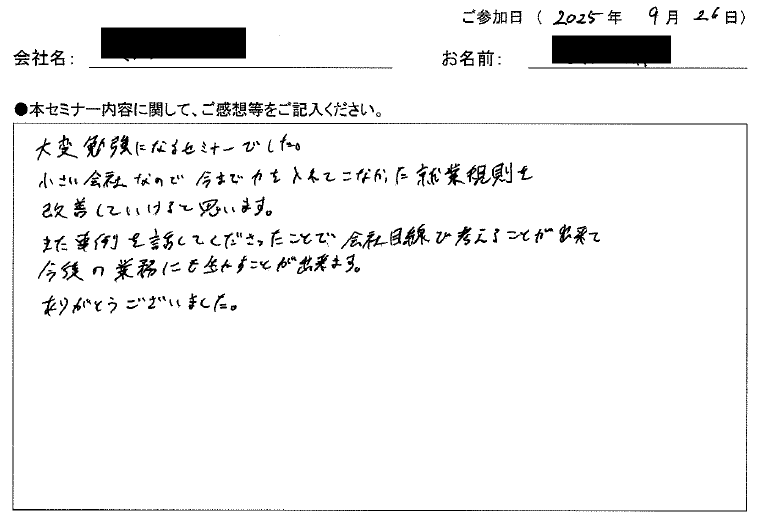 ご参加日 ( 2025 年 9 月 26 日)
会社名:
お名前:
●本セミナー内容に関して、ご感想等をご記入ください。
大変勉強になるセミナーでした。
小さい会社なので今まで力を入れてこなかった就業規則を
改善していけると思います。
また事例を話してくださったことで会社目線で考えることが出来て
今後の業務にも生かすことが出来ます。
ありがとうございました。